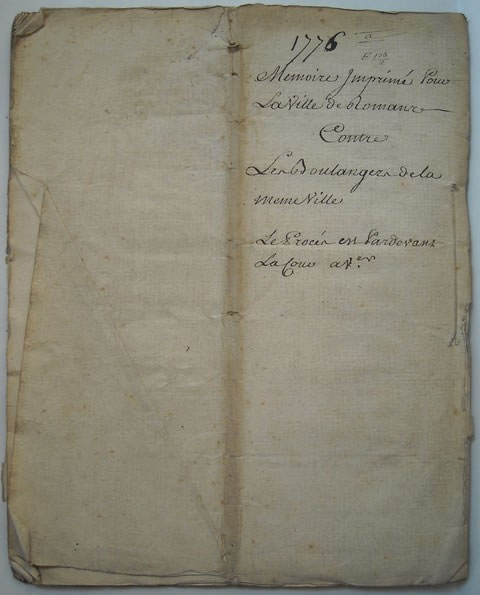 1776
Memoire Imprimé Pour
La Ville de Romans
Contre
Les Boulangers de la
meme Ville
Le Procés en Pardevant
La Cour